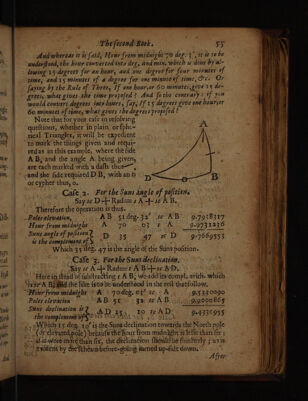 The second Book. 55
And whereas it is said, Hour from midnight 70 deg. 3', it is to be
understood, the hour converted into deg. and min. which is done by al-
lowing 15 degrees for an hour, and one degree for four minutes of
time, and 15 minutes of a degree for one minute of time, &c. Or
saying by the Rule of Three, If one hour, or 60 minutes, give 15 de-
grees, what gives the time proposed? And so the contrary: if you
would convert degrees into hours, say, If 15 degrees give one hour, or
60 minutes of time, what gives the degrees proposed?
Note that for your ease in resolving
questions, whether in plain or sphe-
rical Triangles, it will be expedient
to mark the things given and requi-
red as in this example, where the side
A B, and the angle A being given,
are each marked with a dash thus
and the side required D B, with an o
or cypher thus, o.
A
D
o
B
Case 2. For the Suns angle of position.
Say sc D + Radius s A + sc A B.
Therefore the operation is thus.
Poles elevation, A B 51 deg. 32' sc A B 9.7938317
Hour from midnight A 70 03 s A 9.9731216
Suns angle of position is the complement of D 35 47 sc D 9.7669555
Which 35 deg. 47 is the angle of the Suns position.
Case 3. For the Suns declination.
Say sc A + Radius t A B + tc A D.
Here instead of subtracting
Hour from midnight A 70 deg. 03' sc. A
Poles elevation A B 51 32 tc A B
Suns declination is the complement of A D tc A D 9.4333955
Which 15 deg. 10' is the Suns declination towards the North pole
because the hour from midnight is less than six;
if it were more than six, the declination should be
turned up-side down.
After